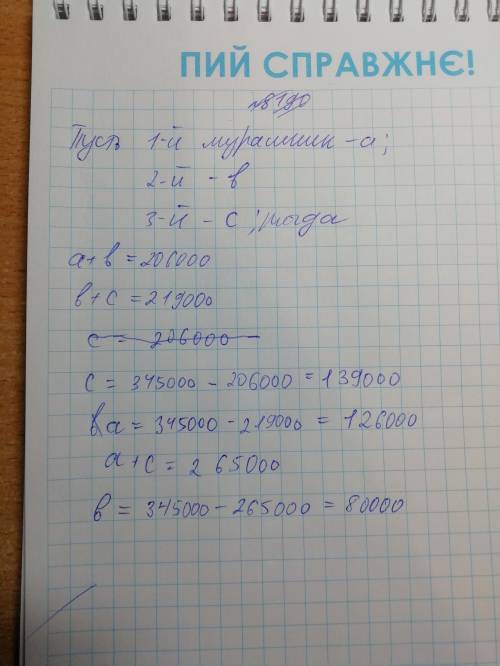 ПИЙ СПРАВЖНЄ!
№8190
Пусть 1-й мурашник - а;
2-й - в
3-й - с; тогда
а + в = 206000
в + с = 219000
с = 206000
с = 345000 - 206000 = 139000
а = 345000 - 219000 = 126000
а + с = 265000
в = 345000 - 265000 = 80000